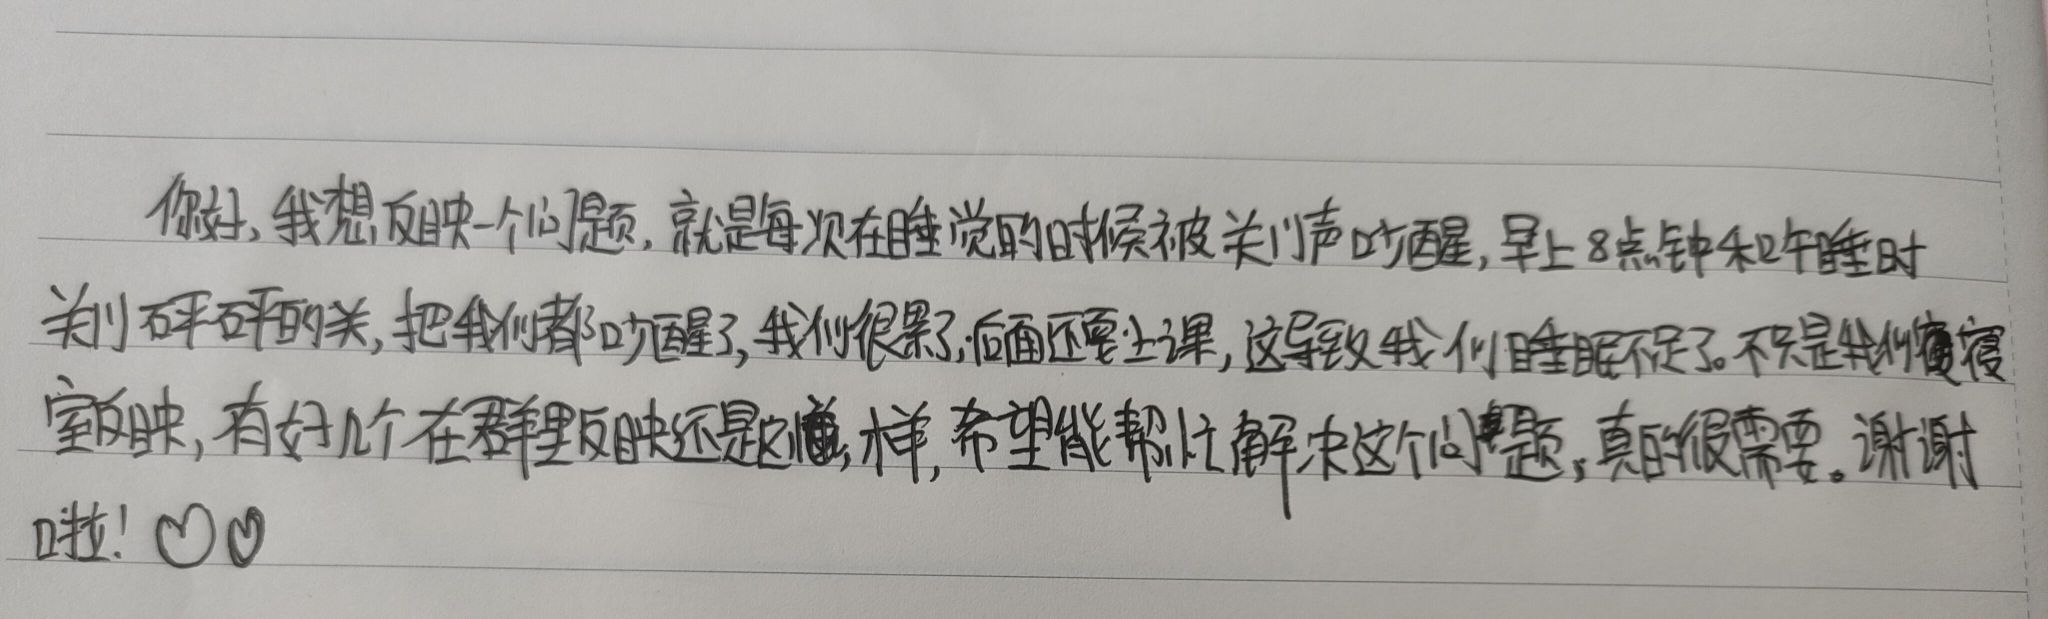 你好，我想反映一个问题，就是每次在睡觉的时候被关门声吵醒，早上8点钟和午睡时
关门砰砰的关，把我们都吵醒了，我们很累了，后面还要上课，这导致我们睡眠不足了。不只是我们寝
室反映，有好几个在群里反映还是这样，希望能帮忙解决这个问题，真的很需要。谢谢
啦！♡♡